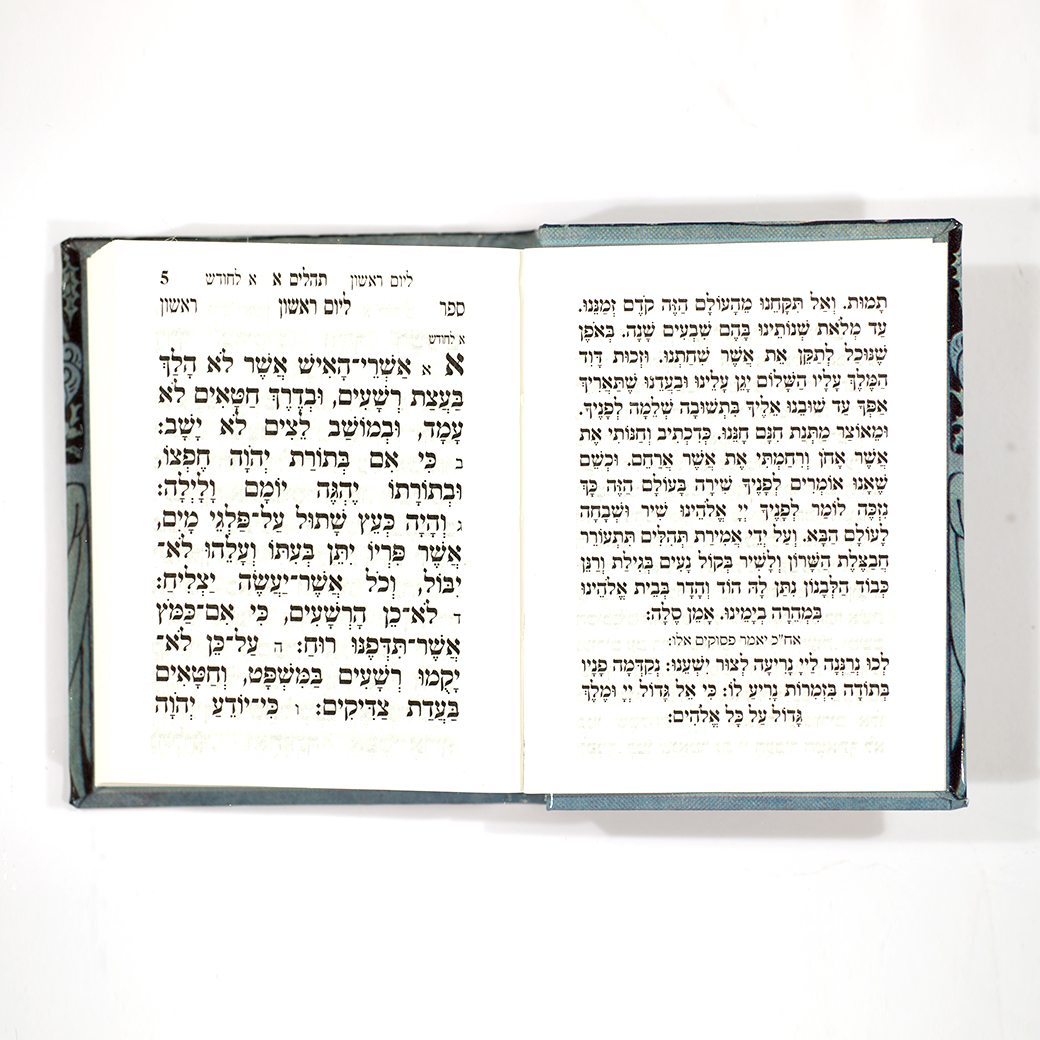 תָמוּת. וְאַל תִּקָּחֵנוּ מֵהָעוֹלָם הַזֶּה קֹדֶם זְמַנֵּנוּ.
עַד מְלֹאת שְׁנוֹתֵינוּ בָּהֶם שִׁבְעִים שָׁנָה. בְּאֹפֶן
שֶׁנּוּכַל לְתַקֵּן אֶת אֲשֶׁר שִׁחַתְנוּ. וּזְכוּת דָּוִד
הַמֶּלֶךְ עָלָיו הַשָּׁלוֹם יָגֵן עָלֵינוּ וּבַעֲדֵנוּ שֶׁתַּאֲרִיךְ
אַפְּךָ עַד שׁוּבֵנוּ אֵלֶיךָ בִּתְשׁוּבָה שְׁלֵמָה לְפָנֶיךָ.
וּמֵאוֹצַר מַתְּנַת חִנָּם חָנֵּנוּ. כְּדִכְתִיב וְחַנּוֹתִי אֶת
אֲשֶׁר אָחֹן וְרִחַמְתִּי אֶת אֲשֶׁר אֲרַחֵם. וּכְשֵׁם
שֶׁאָנוּ אוֹמְרִים לְפָנֶיךָ שִׁירָה בָּעוֹלָם הַזֶּה כָּךְ
נִזְכֶּה לוֹמַר לְפָנֶיךָ יְיָ אֱלֹהֵינוּ שִׁיר וּשְׁבָחָה
לָעוֹלָם הַבָּא. וְעַל יְדֵי אֲמִירַת תְּהִלִּים תִּתְעוֹרֵר
חֲבַצֶּלֶת הַשָּׁרוֹן וְלָשִׁיר בְּקוֹל נָעִים בְּגִילַת וְרַנֵּן
כְּבוֹד הַלְּבָנוֹן נִתַּן לָהּ הוֹד וְהָדָר בְּבֵית אֱלֹהֵינוּ
בִּמְהֵרָה בְיָמֵינוּ. אָמֵן סֶלָה:
אח"כ יאמר פסוקים אלו:
לְכוּ נְרַנְּנָה לַייָ נָרִיעָה לְצוּר יִשְׁעֵנוּ: נְקַדְּמָה פָנָיו
בְּתוֹדָה בִּזְמִרוֹת נָרִיעַ לוֹ: כִּי אֵל גָּדוֹל יְיָ וּמֶלֶךְ
גָּדוֹל עַל כָּל אֱלֹהִים:
ליום ראשון תהלים א א לחודש 5
ספר ליום ראשון ראשון
א לחודש
א א אַשְׁרֵי־הָאִישׁ אֲשֶׁר לֹא הָלַךְ
בַּעֲצַת רְשָׁעִים, וּבְדֶרֶךְ חַטָּאִים לֹא
עָמָד, וּבְמוֹשַׁב לֵצִים לֹא יָשָׁב:
ב כִּי אִם בְּתוֹרַת יְהֹוָה חֶפְצוֹ,
וּבְתוֹרָתוֹ יֶהְגֶּה יוֹמָם וָלָיְלָה:
ג וְהָיָה כְּעֵץ שָׁתוּל עַל־פַּלְגֵי מָיִם,
אֲשֶׁר פִּרְיוֹ יִתֵּן בְּעִתּוֹ וְעָלֵהוּ לֹא־
יִבּוֹל, וְכֹל אֲשֶׁר־יַעֲשֶׂה יַצְלִיחַ:
ד לֹא־כֵן הָרְשָׁעִים, כִּי אִם־כַּמֹּץ
אֲשֶׁר־תִּדְּפֶנּוּ רוּחַ: ה עַל־כֵּן לֹא־
יָקֻמוּ רְשָׁעִים בַּמִּשְׁפָּט, וְחַטָּאִים
בַּעֲדַת צַדִּיקִים: ו כִּי־יוֹדֵעַ יְהֹוָה